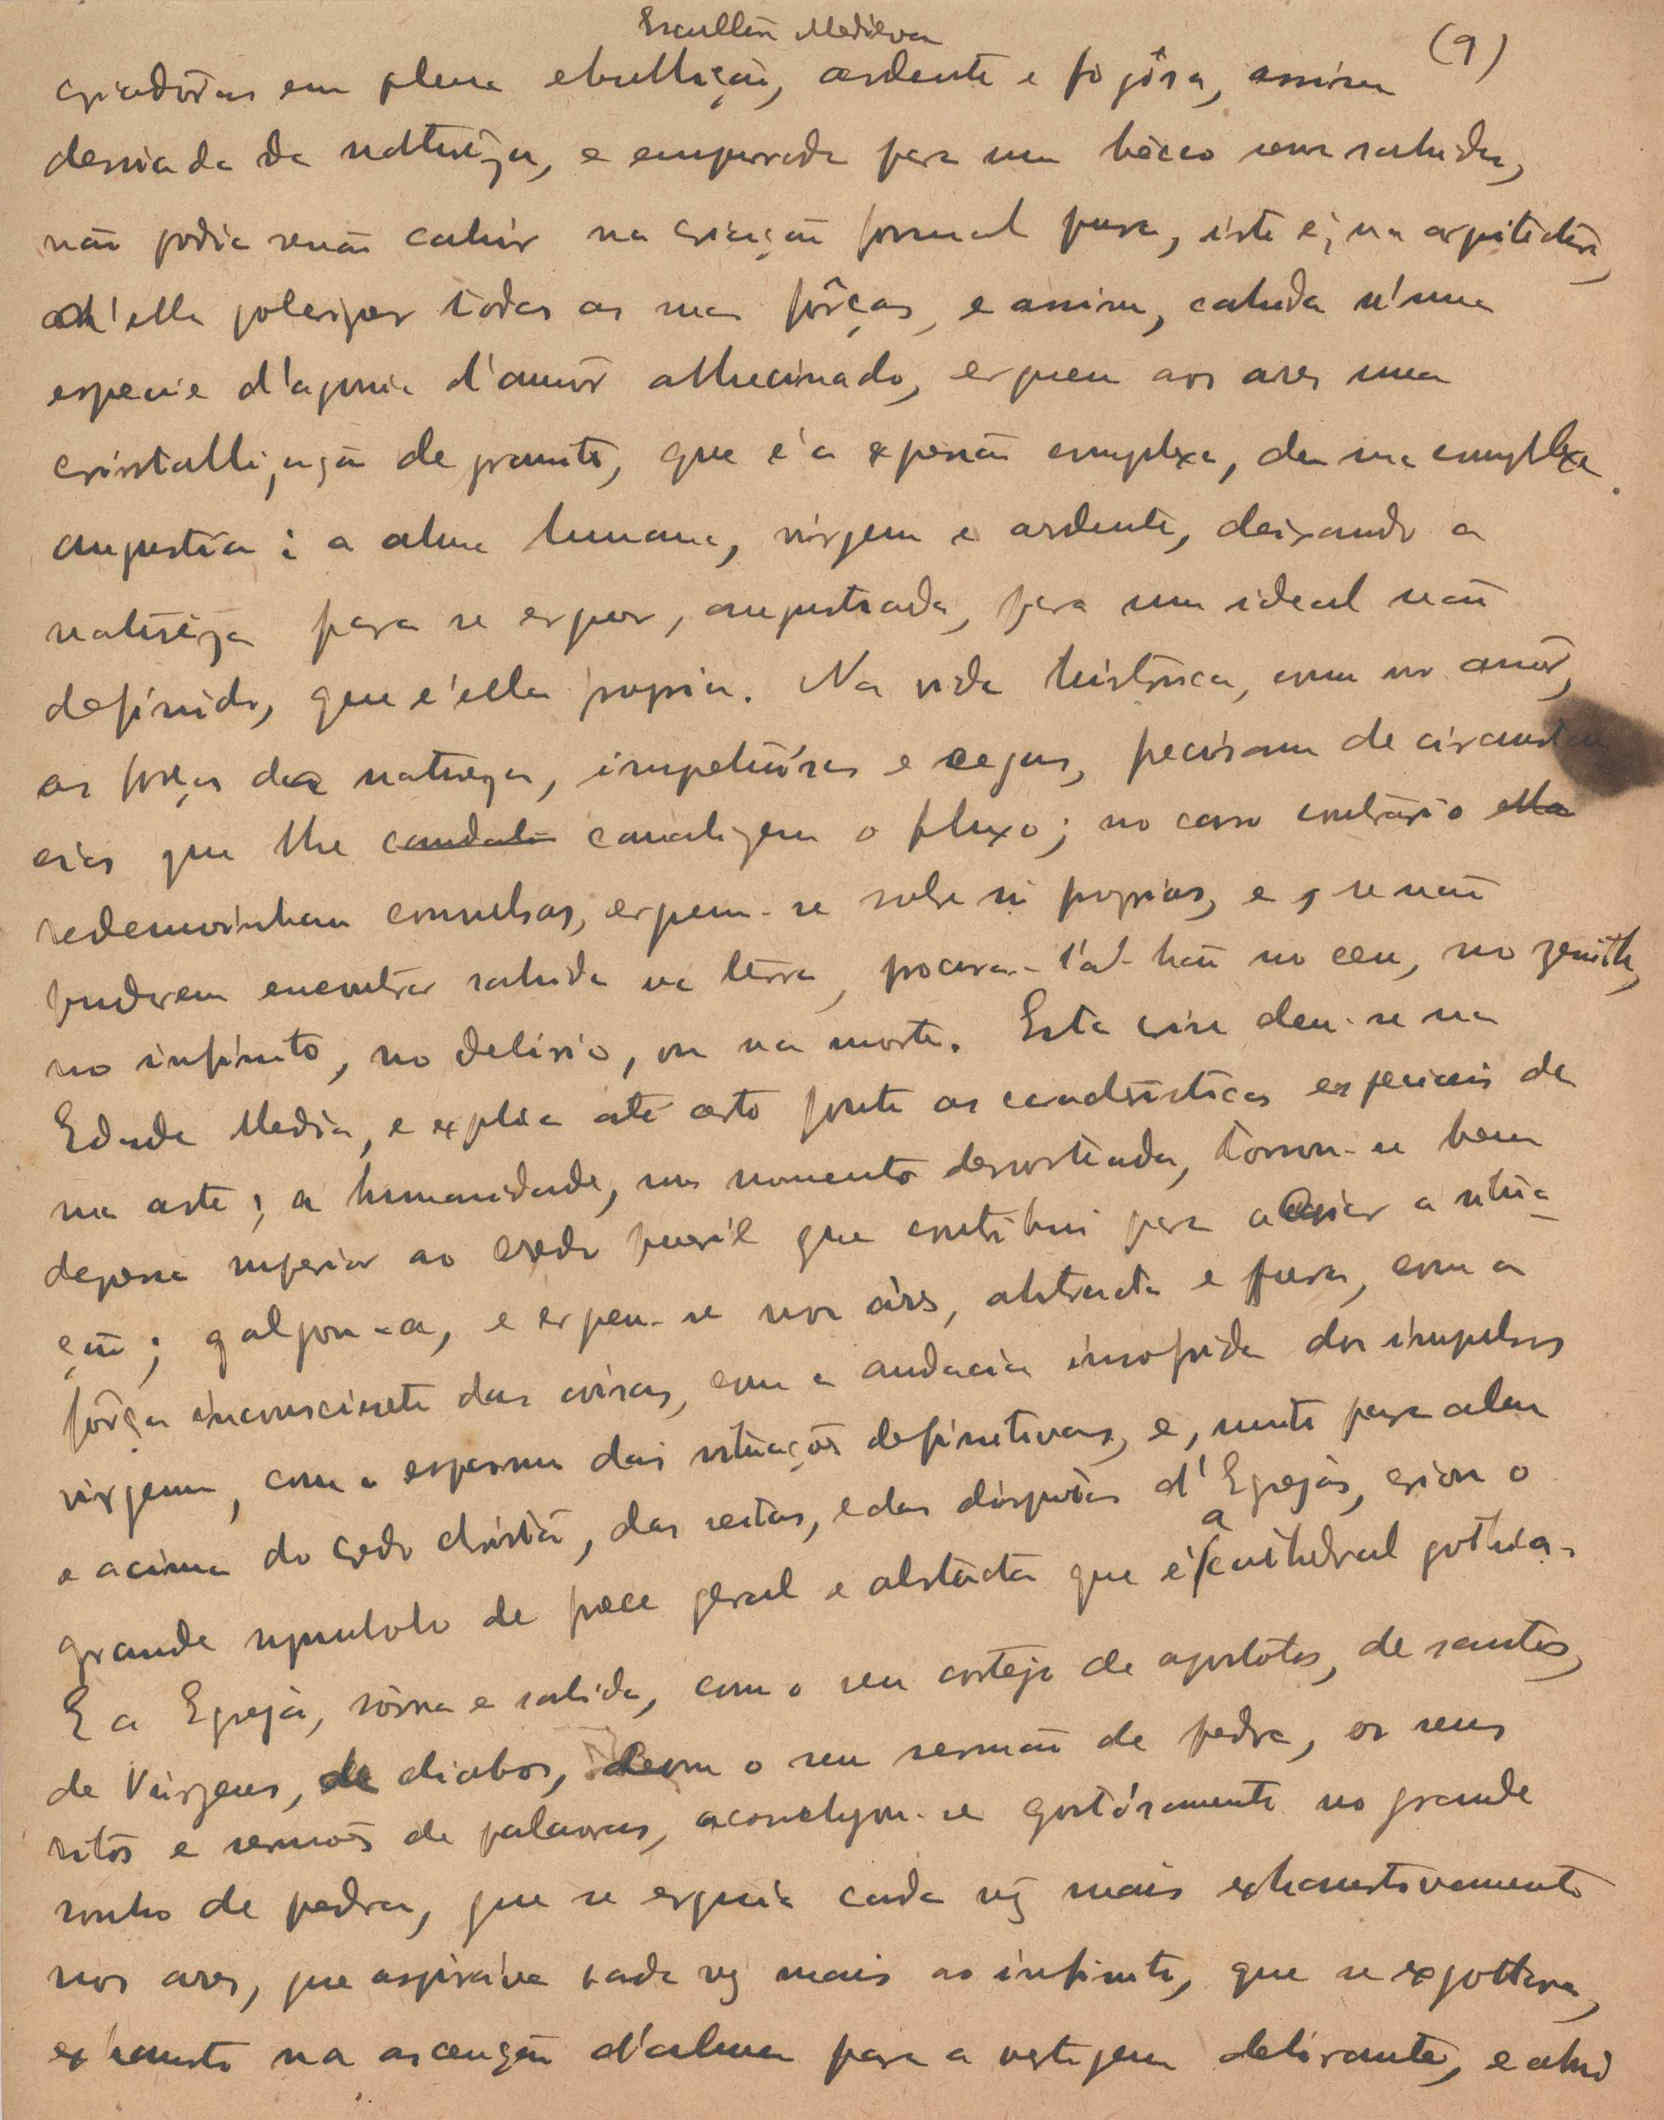 Escultura Medieva
(9)
criadôras em plena ebulliçaõ, ardente e fogôsa, assim
desviada da natturêza, e empurrada para um bècco sem sahida,
naõ podia senaõ cahir na criaçaõ formal pura, isto é, na arquitectura,
n'ella polarizar todas as suas fôrças, e assim, cahida n'uma
especie d'agonia d'amôr allucinado, ergueu aos ares uma
cristallizaçaõ de granito, que é a expressaõ complexa, de uma complexa
angustia: a alma humana, virgem e ardente, deixando a
naturêza para se erguer, angustiada, para um ideal naõ
definido, que é ella propria. Na vida historica, como no amôr,
as forças da naturêza, impetuôsas e cegas, precisam de circunstan
cias que lhe canalizem o fluxo; no caso contrario
redemoinham convulsas, erguem-se sobre si proprias, e, se naõ
puderem encontrar sahida na terra, procura-l'a-haõ no ceu, no zenith,
no infinito, no delirio, ou na morte. Esta crise deu-se na
Edade Media, e explica até certo ponto as caracteristicas especiais da
sua arte; a humanidade, um momento desnorteada, tornou-se bem
depressa superior ao credo pueril que contribui para a criar a situa-
çaõ; galgou-a, e ergueu-se nos áres, abstracta e pura, com a
fôrça inconsciente das coisas, com a audacia insofrida dos impulsos
virgens, com o espasmo das situações definitivas, e, muito para alem
e acima do credo christaõ, das seitas, e das disputas d'Egrejas, criou o
grande symbolo de prece geral e abstracta que é a cathedral gothica.
E a Egreja, sôrna e sabida, com o seu cortejo de apostolos, de santos,
de Virgens, de diabos, com o seu sermaõ de pedra, os seus
ritos e sermões de palavras, aconchegou-se gostósamente no grande
sonho de pedra, que se erguia cada vez mais exhaustivamente
nos ares, que aspirava cada vez mais ao infinito, que se exgottava,
exhausto na ascençaõ d'alma para a vertigem delirante, e ahi